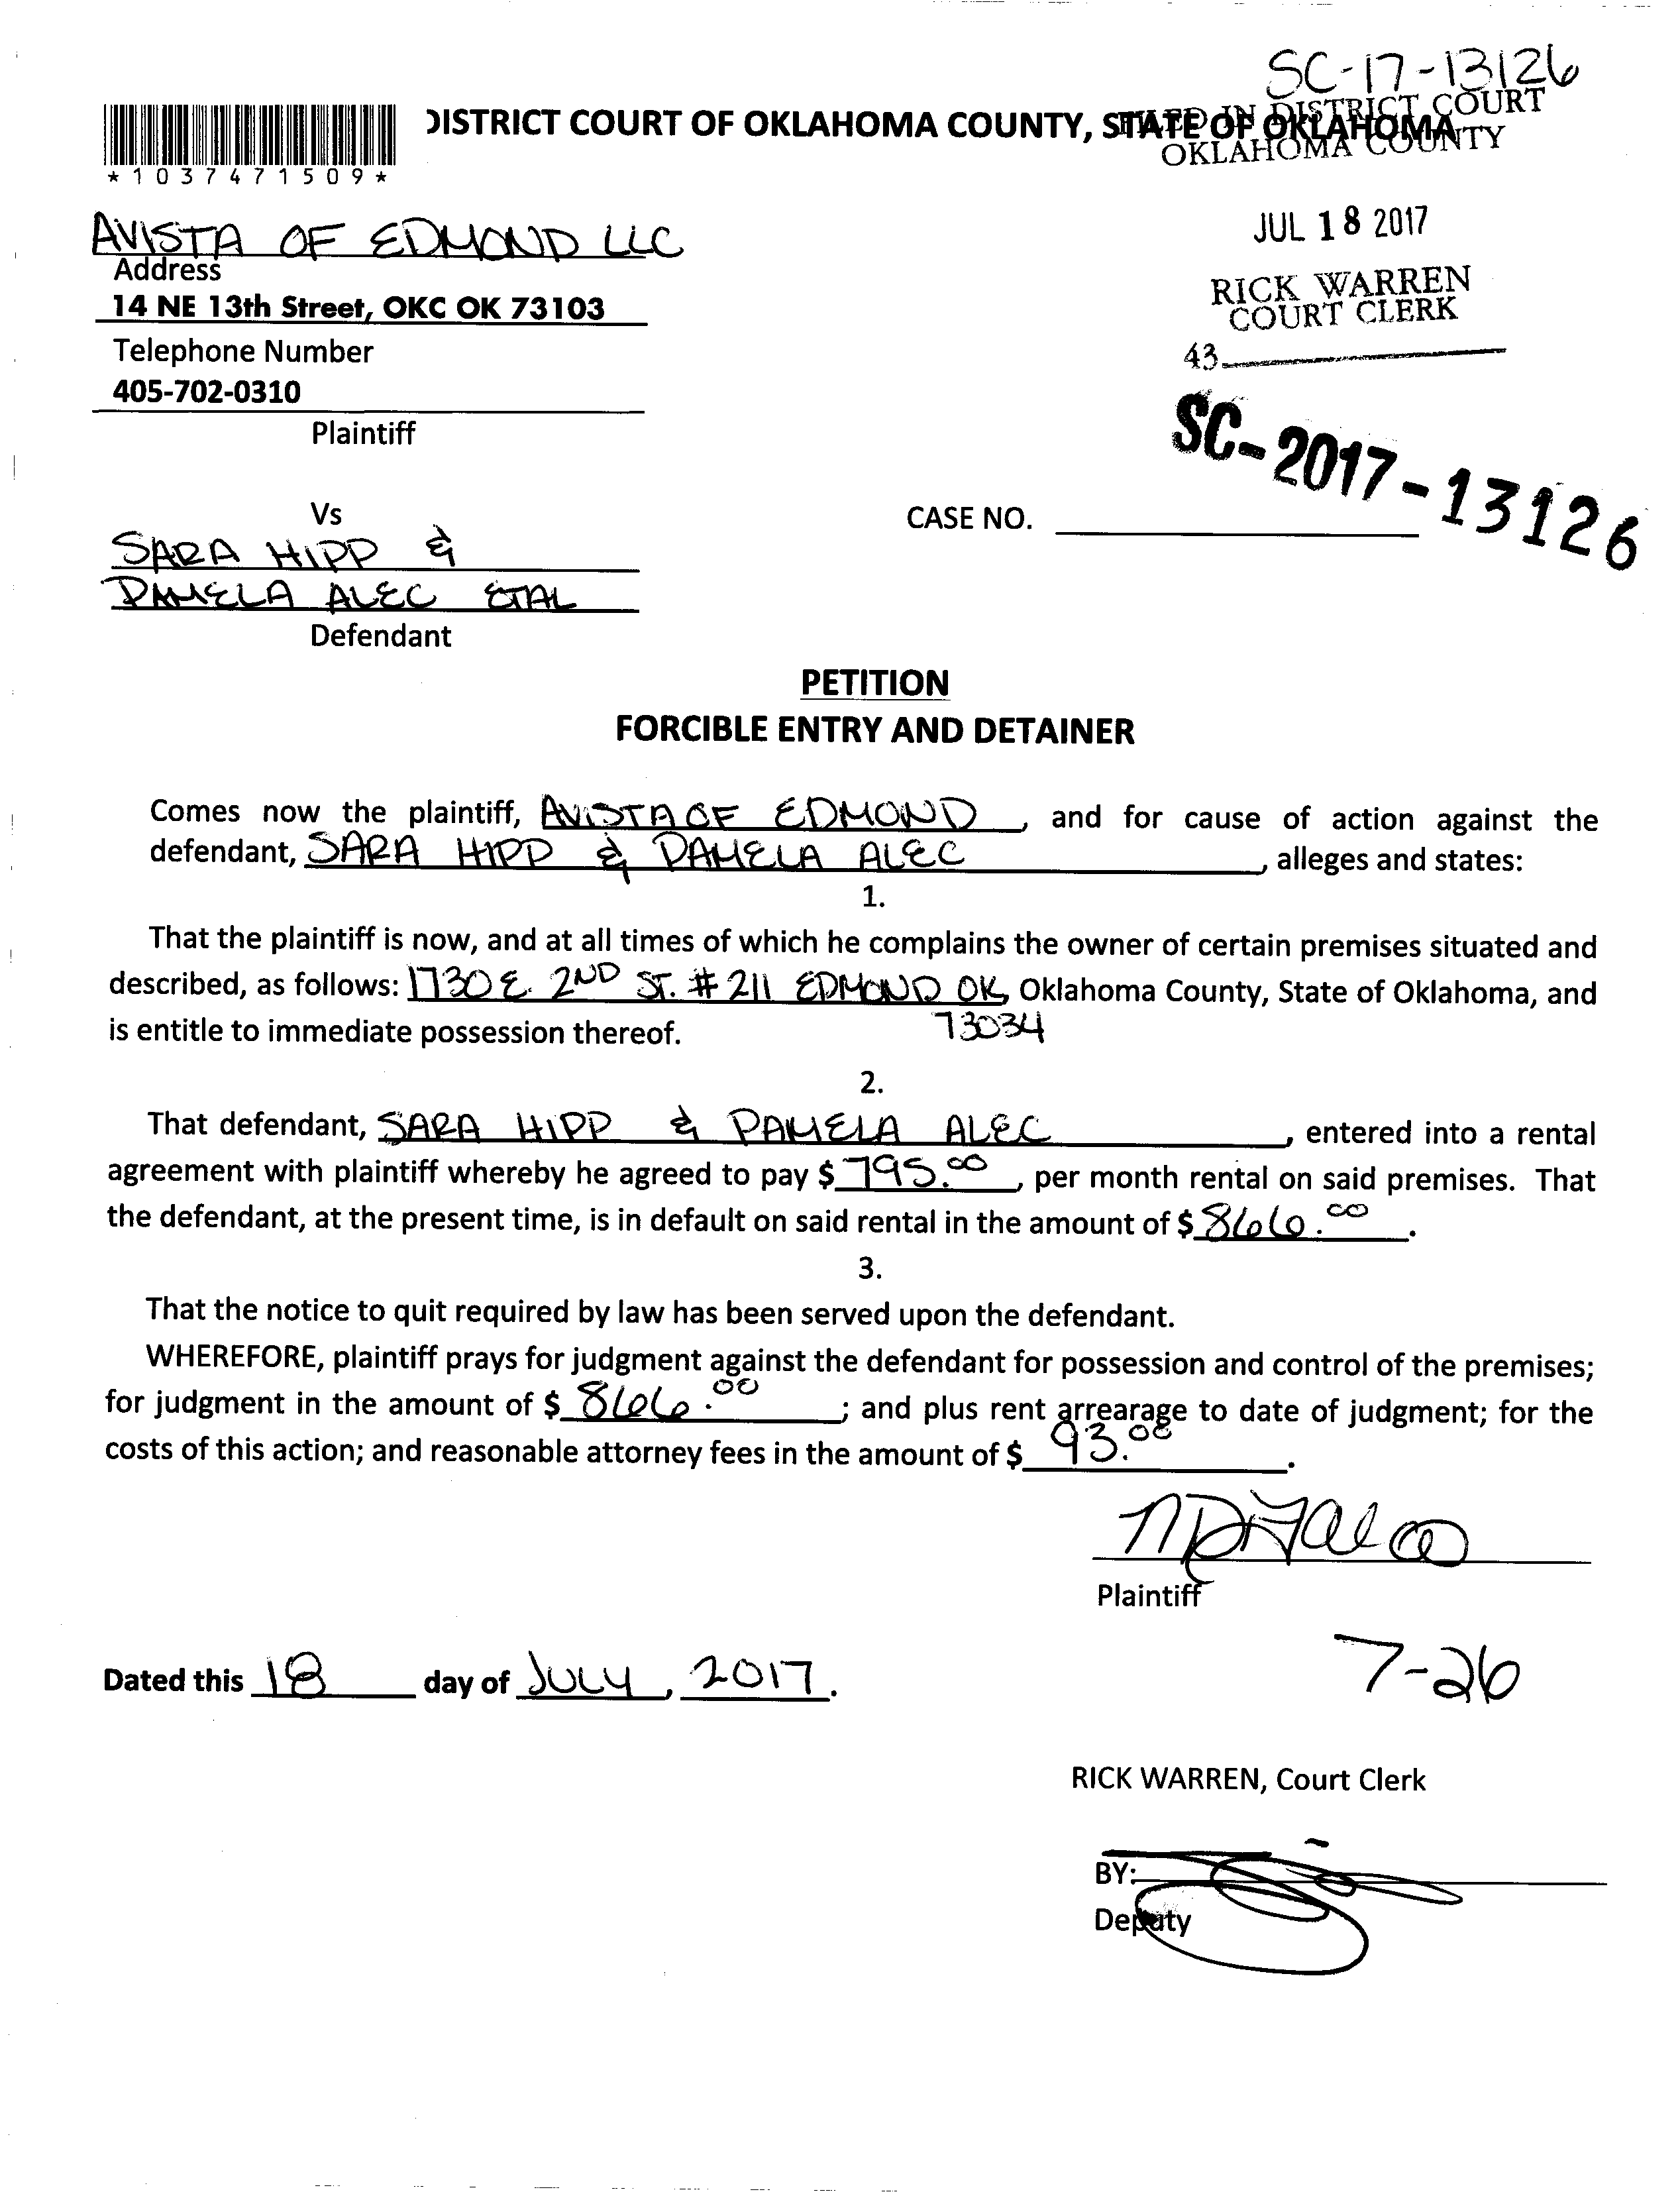 SC-17-13126
DISTRICT COURT OF OKLAHOMA COUNTY, STATE OF OKLAHOMA
FILED IN DISTRICT COURT
OKLAHOMA COUNTY
*1037471509*
JUL 18 2017
RICK WARREN
COURT CLERK
43
AVISTA OF EDMOND LLC
Address
14 NE 13th Street, OKC OK 73103
Telephone Number
405-702-0310
Plaintiff
SC-2017-13126
Vs
CASE NO.
SARA HIPP &
PAMELA ALEC ETAL
Defendant
PETITION
FORCIBLE ENTRY AND DETAINER
Comes now the plaintiff, AVISTA OF EDMOND, and for cause of action against the
defendant, SARA HIPP & PAMELA ALEC, alleges and states:
1.
That the plaintiff is now, and at all times of which he complains the owner of certain premises situated and
described, as follows: 1730 E. 2ND ST. # 211 EDMOND OK, Oklahoma County, State of Oklahoma, and
is entitle to immediate possession thereof. 73034
2.
That defendant, SARA HIPP & PAMELA ALEC, entered into a rental
agreement with plaintiff whereby he agreed to pay $ 795.00, per month rental on said premises. That
the defendant, at the present time, is in default on said rental in the amount of $ 866.00.
3.
That the notice to quit required by law has been served upon the defendant.
WHEREFORE, plaintiff prays for judgment against the defendant for possession and control of the premises;
for judgment in the amount of $ 866.00; and plus rent arrearage to date of judgment; for the
costs of this action; and reasonable attorney fees in the amount of $ 93.00.
Plaintiff
7-26
Dated this 18 day of JULY, 2017.
RICK WARREN, Court Clerk
BY:
Deputy